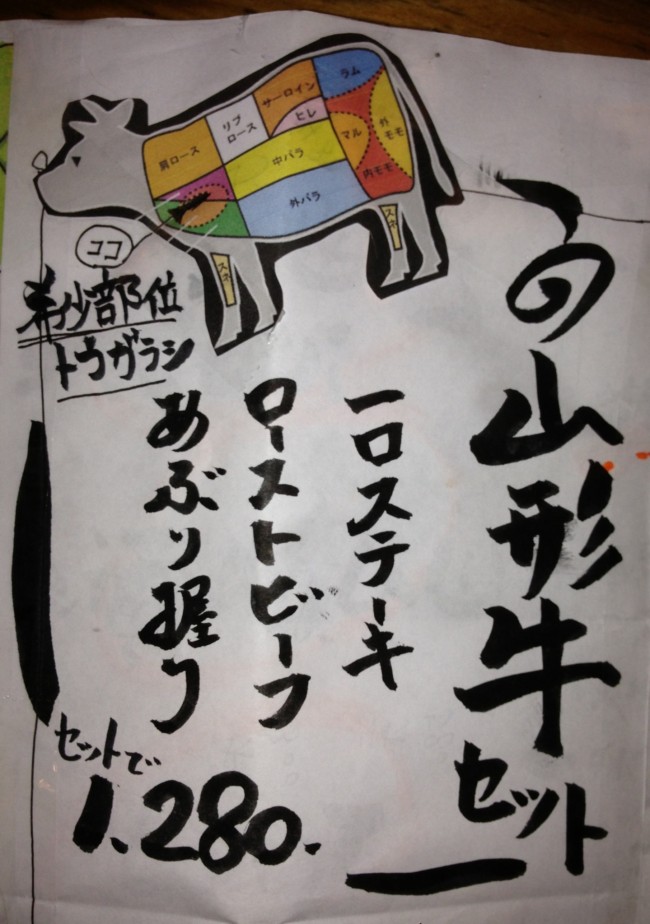 の山形牛セット
一口ステーキ
ローストビーフ
あぶり握り
セットで
1,280.
ココ
希少部位
トウガラシ
肩ロース
リブ
ロース
サーロイン
ヒレ
ラム
中バラ
外バラ
マル
外
モモ
内モモ
スネ
スネ